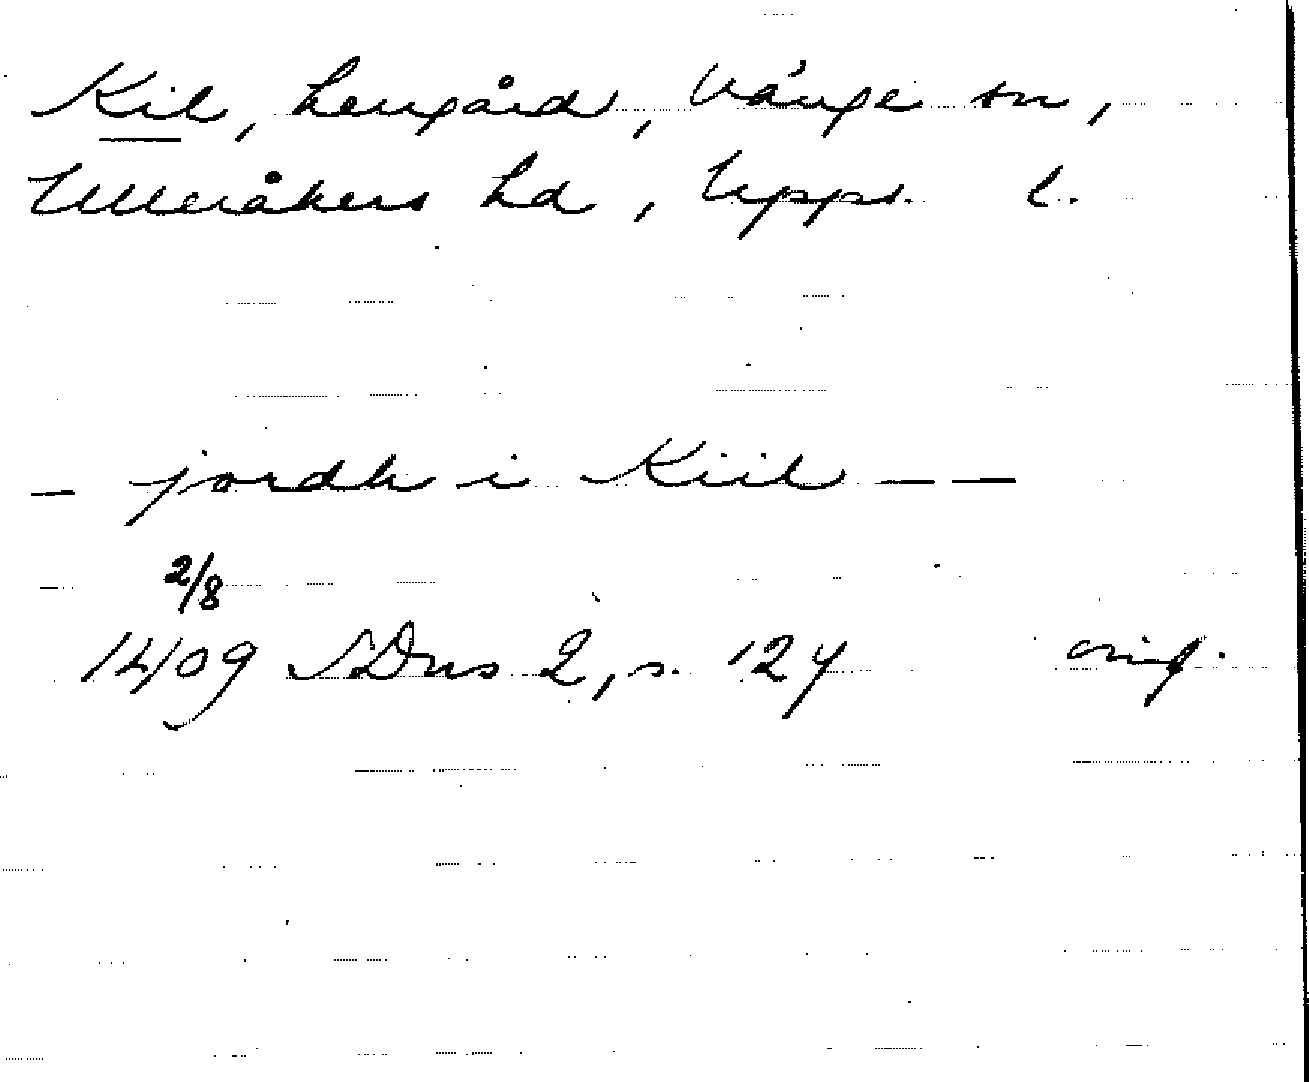 Kil, herrgård, Vänge sn,
Ulleråkers hd, Upps. l.
— jordh i Kiil — —
2/8
1409 SDns 2, s. 127 orig.